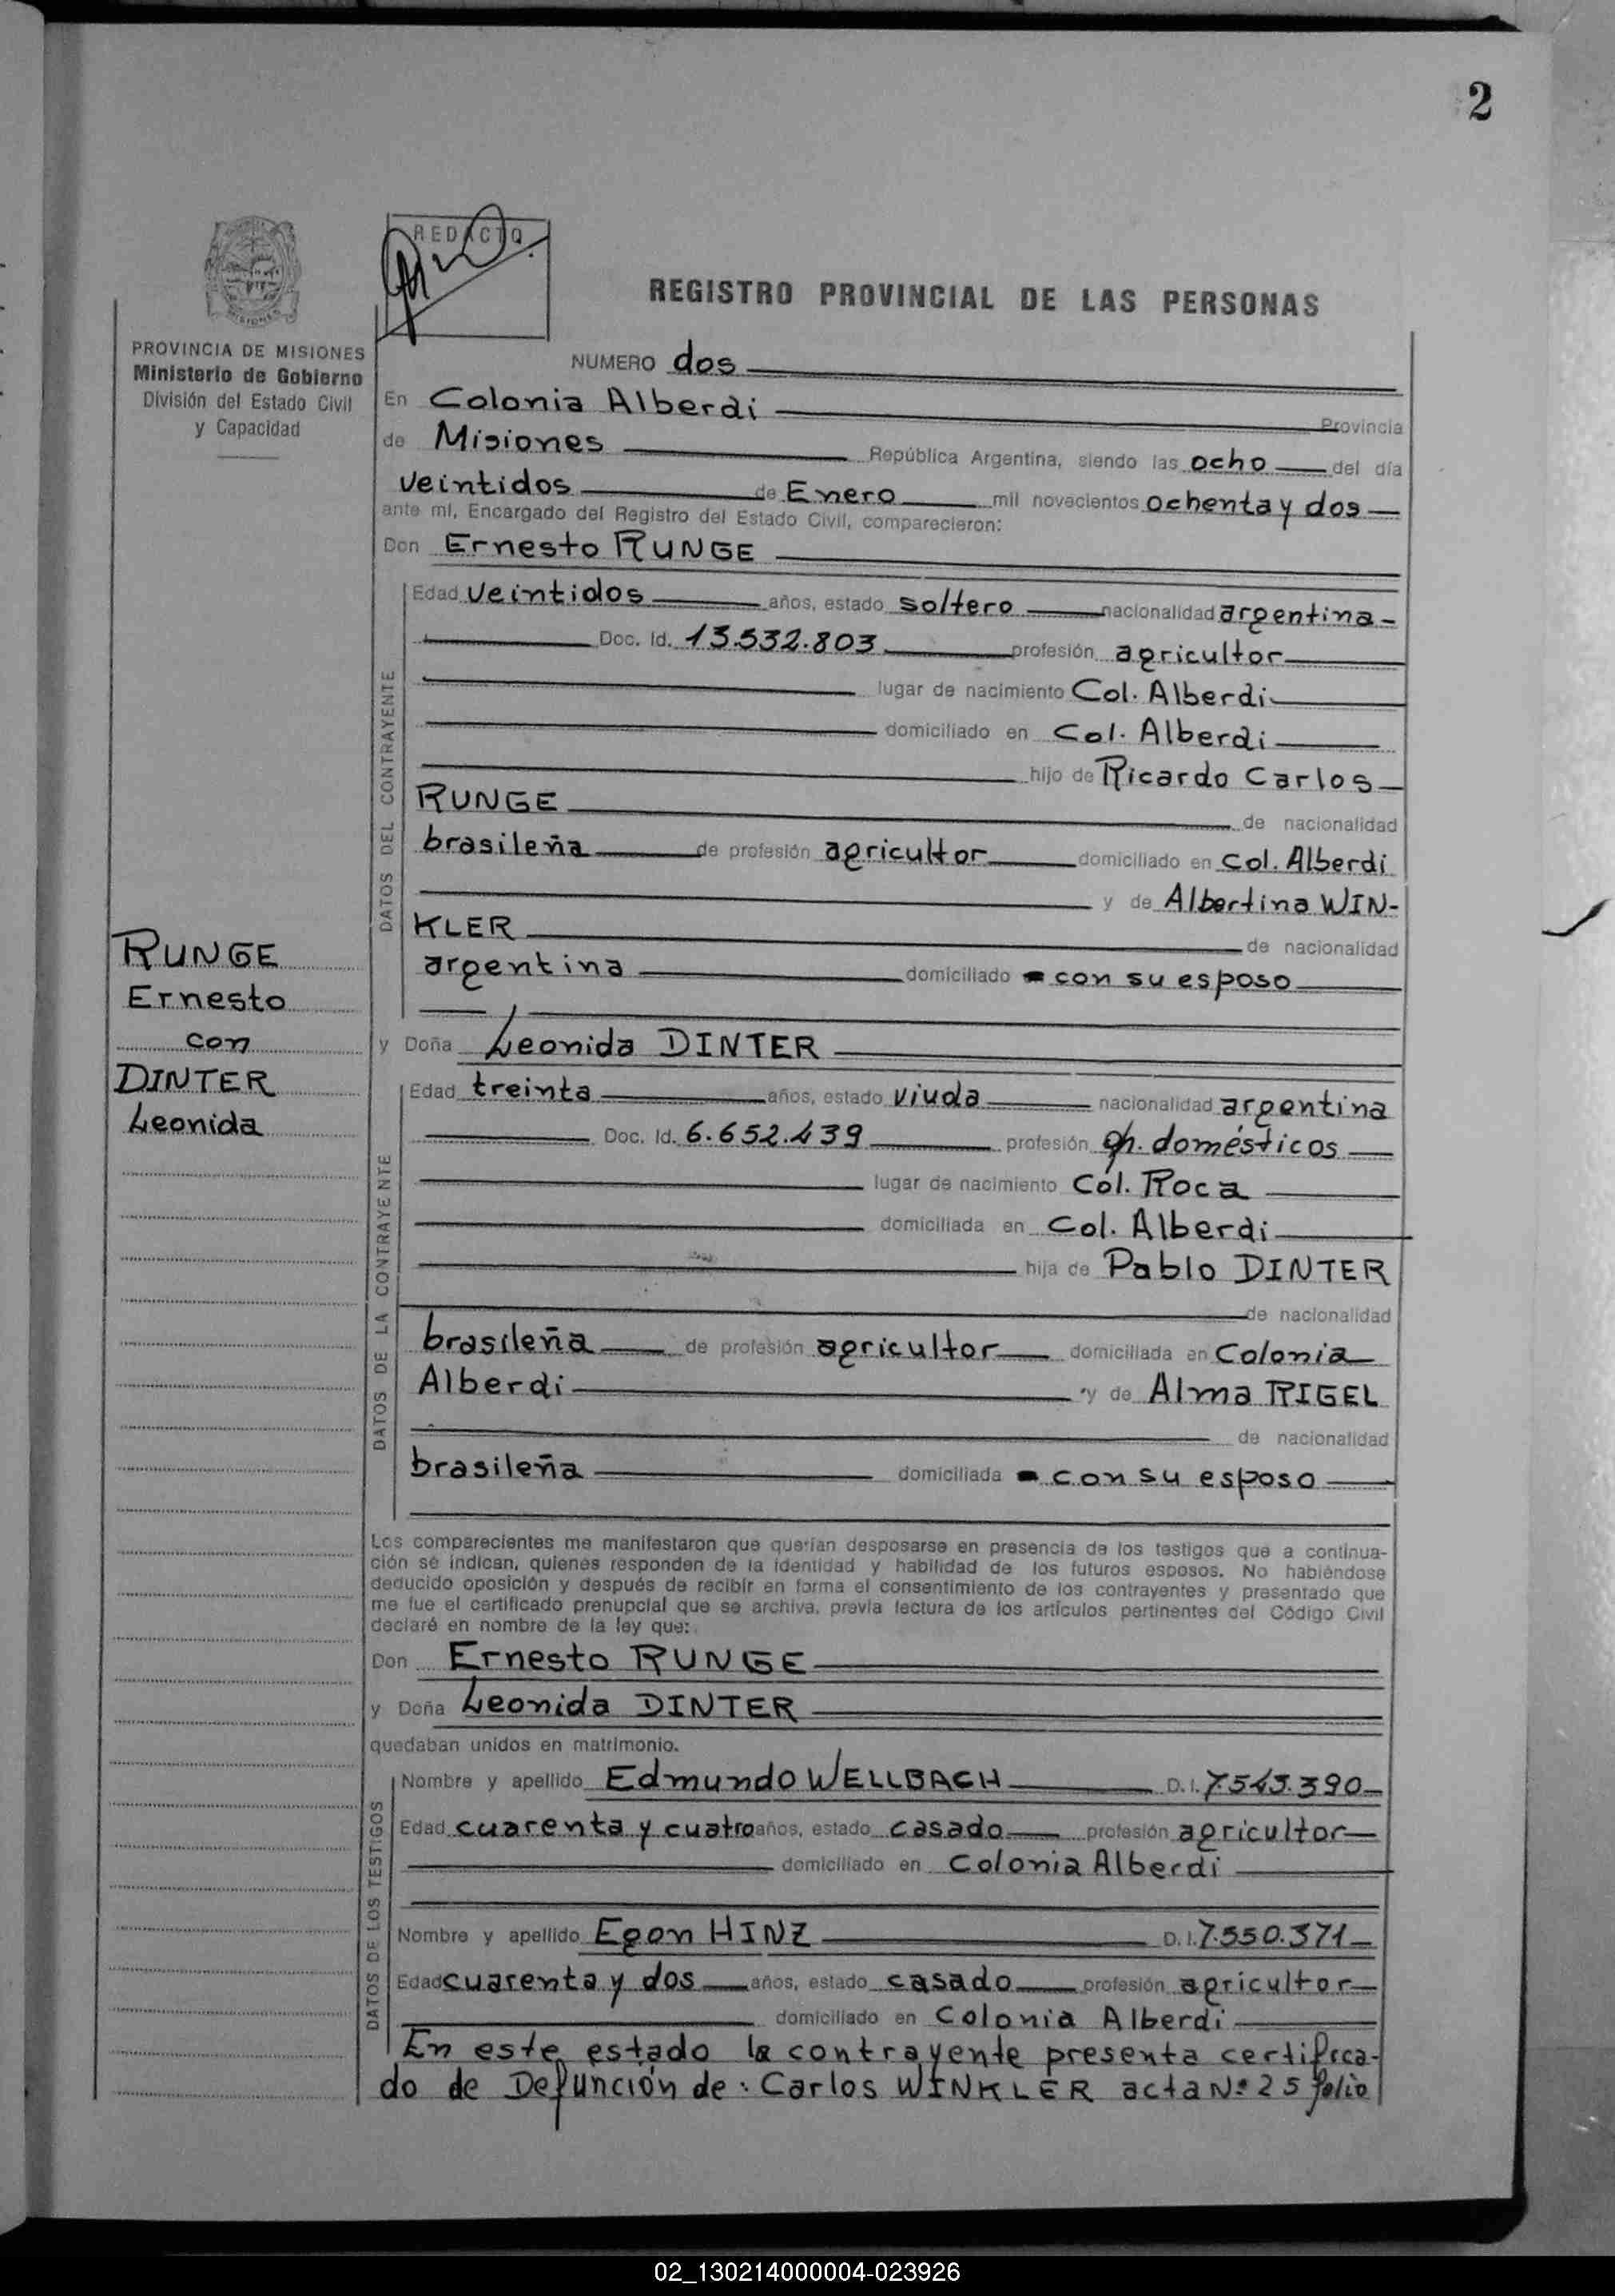 2
REDACTO
REGISTRO PROVINCIAL DE LAS PERSONAS
MISIONES
PROVINCIA DE MISIONES
Ministerio de Gobierno
División del Estado Civil
y Capacidad
NUMERO dos
En Colonia Alberdi Provincia
de Misiones República Argentina, siendo las ocho del día
veintidos de Enero mil novecientos ochenta y dos
ante mí, Encargado del Registro del Estado Civil, comparecieron:
Don Ernesto RUNGE
DATOS DEL CONTRAYENTE
Edad veintidos años, estado soltero nacionalidad argentina
Doc. Id. 13.532.803 profesión agricultor
lugar de nacimiento Col. Alberdi
domiciliado en Col. Alberdi
hijo de Ricardo Carlos
RUNGE de nacionalidad
brasileña de profesión agricultor domiciliado en Col. Alberdi
y de Albertina WIN-
KLER de nacionalidad
argentina domiciliado con su esposo
RUNGE
Ernesto
con
DINTER
Leonida
y Doña Leonida DINTER
DATOS DE LA CONTRAYENTE
Edad treinta años, estado viuda nacionalidad argentina
Doc. Id. 6.652.439 profesión qh. domésticos
lugar de nacimiento Col. Roca
domiciliada en Col. Alberdi
hija de Pablo DINTER
de nacionalidad
brasileña de profesión agricultor domiciliada en Colonia
Alberdi y de Alma RIGEL
de nacionalidad
brasileña domiciliada con su esposo
Los comparecientes me manifestaron que querían desposarse en presencia de los testigos que a continua-
ción se indican, quienes responden de la identidad y habilidad de los futuros esposos. No habiéndose
deducido oposición y después de recibir en forma el consentimiento de los contrayentes y presentado que
me fue el certificado prenupcial que se archiva, previa lectura de los artículos pertinentes del Código Civil
declaré en nombre de la ley que:
Don Ernesto RUNGE
y Doña Leonida DINTER
quedaban unidos en matrimonio.
DATOS DE LOS TESTIGOS
Nombre y apellido Edmundo WELLBACH D.I. 7.543.390
Edad cuarenta y cuatro años, estado casado profesión agricultor
domiciliado en Colonia Alberdi
Nombre y apellido Egon HINZ D.I. 7.550.371
Edad cuarenta y dos años, estado casado profesión agricultor
domiciliado en Colonia Alberdi
En este estado la contrayente presenta certifica-
do de Defunción de: Carlos WINKLER acta Nº 25 folio
02_130214000004-023926